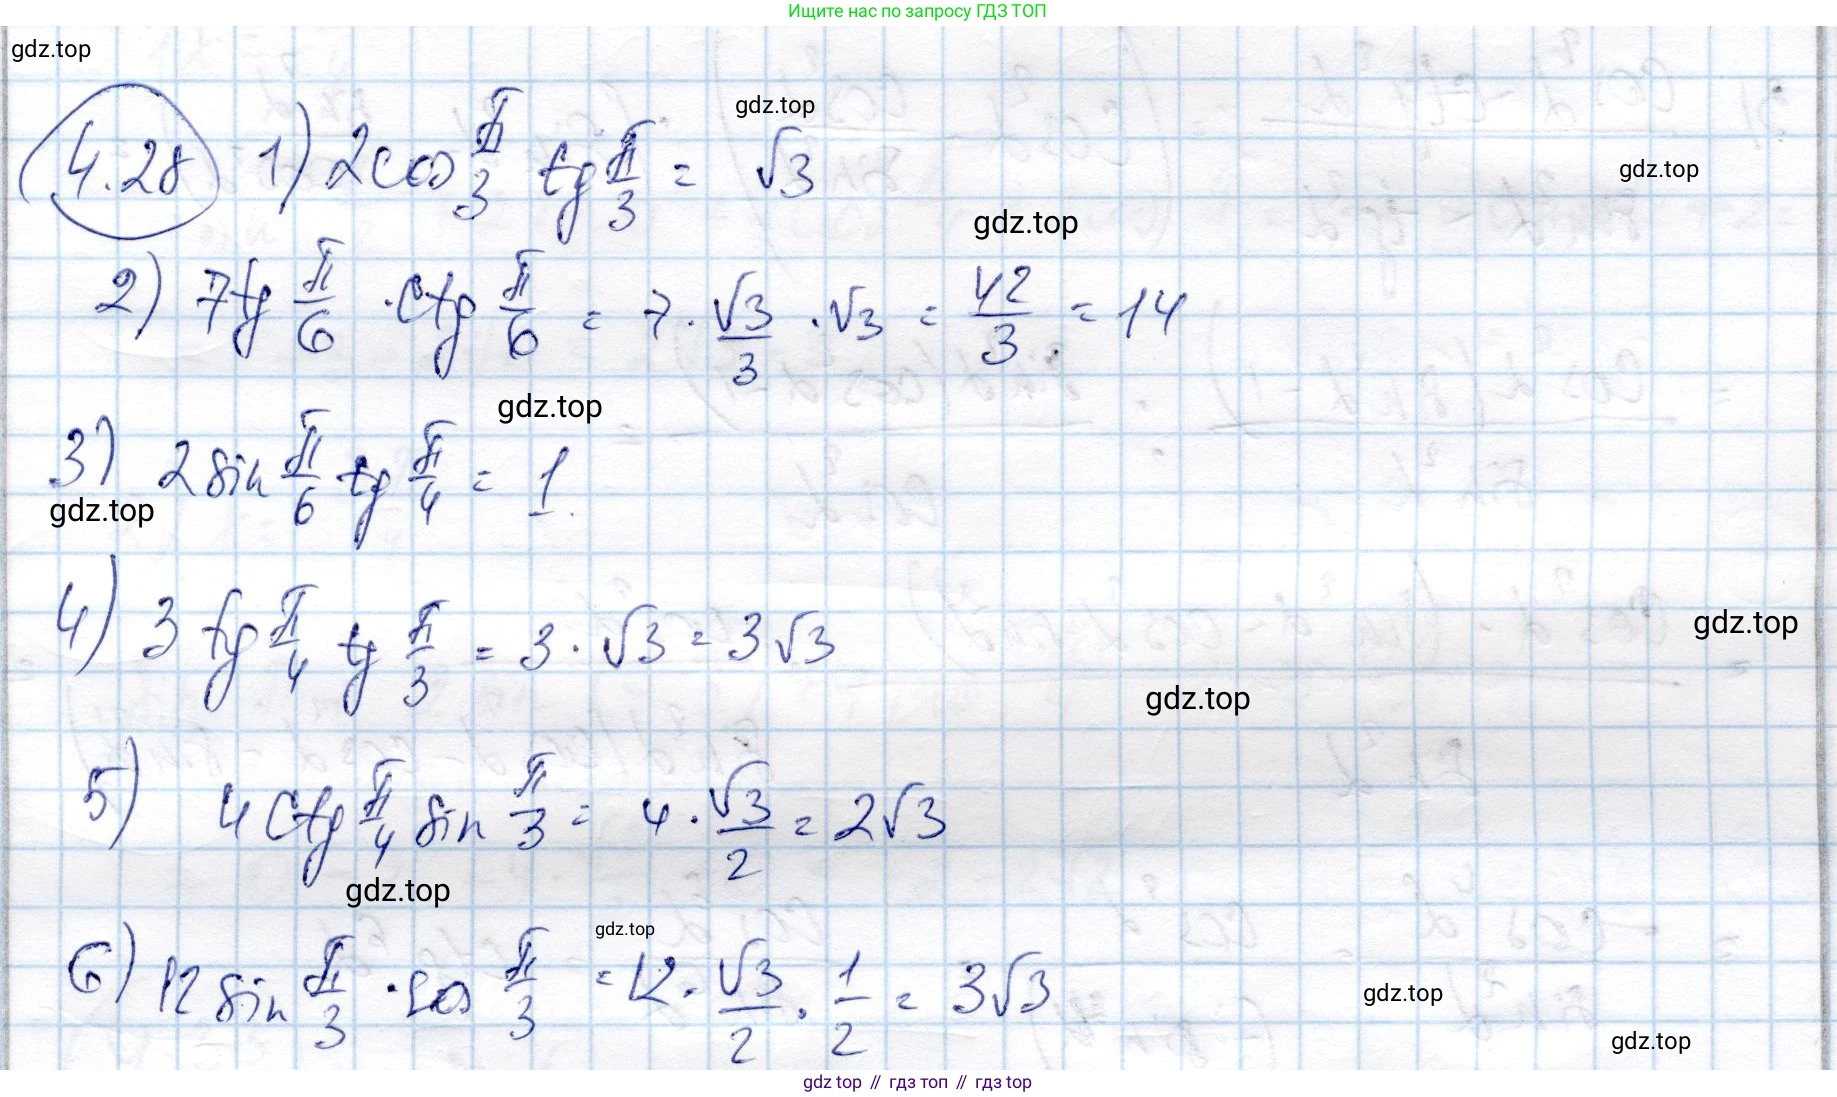 Ищите нас по запросу ГДЗ ТОП
gdz.top
gdz.top
4.28 1) 2cos π/3 tg π/3 = √3
gdz.top
gdz.top
2) 7tg π/6 · ctg π/6 = 7 · √3/3 · √3 = 42/3 = 14
gdz.top
3) 2 sin π/6 tg π/4 = 1
gdz.top
4) 3 tg π/4 tg π/3 = 3 · √3 = 3√3
gdz.top
gdz.top
5) 4 ctg π/4 sin π/3 = 4 · √3/2 = 2√3
gdz.top
gdz.top
6) 12 sin π/3 · cos π/3 = 12 · √3/2 · 1/2 = 3√3
gdz.top
gdz.top
gdz top // гдз топ // гдз top